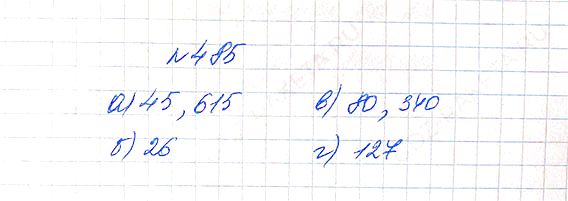 №485
а) 45, 615 в) 80, 340
б) 26 г) 127